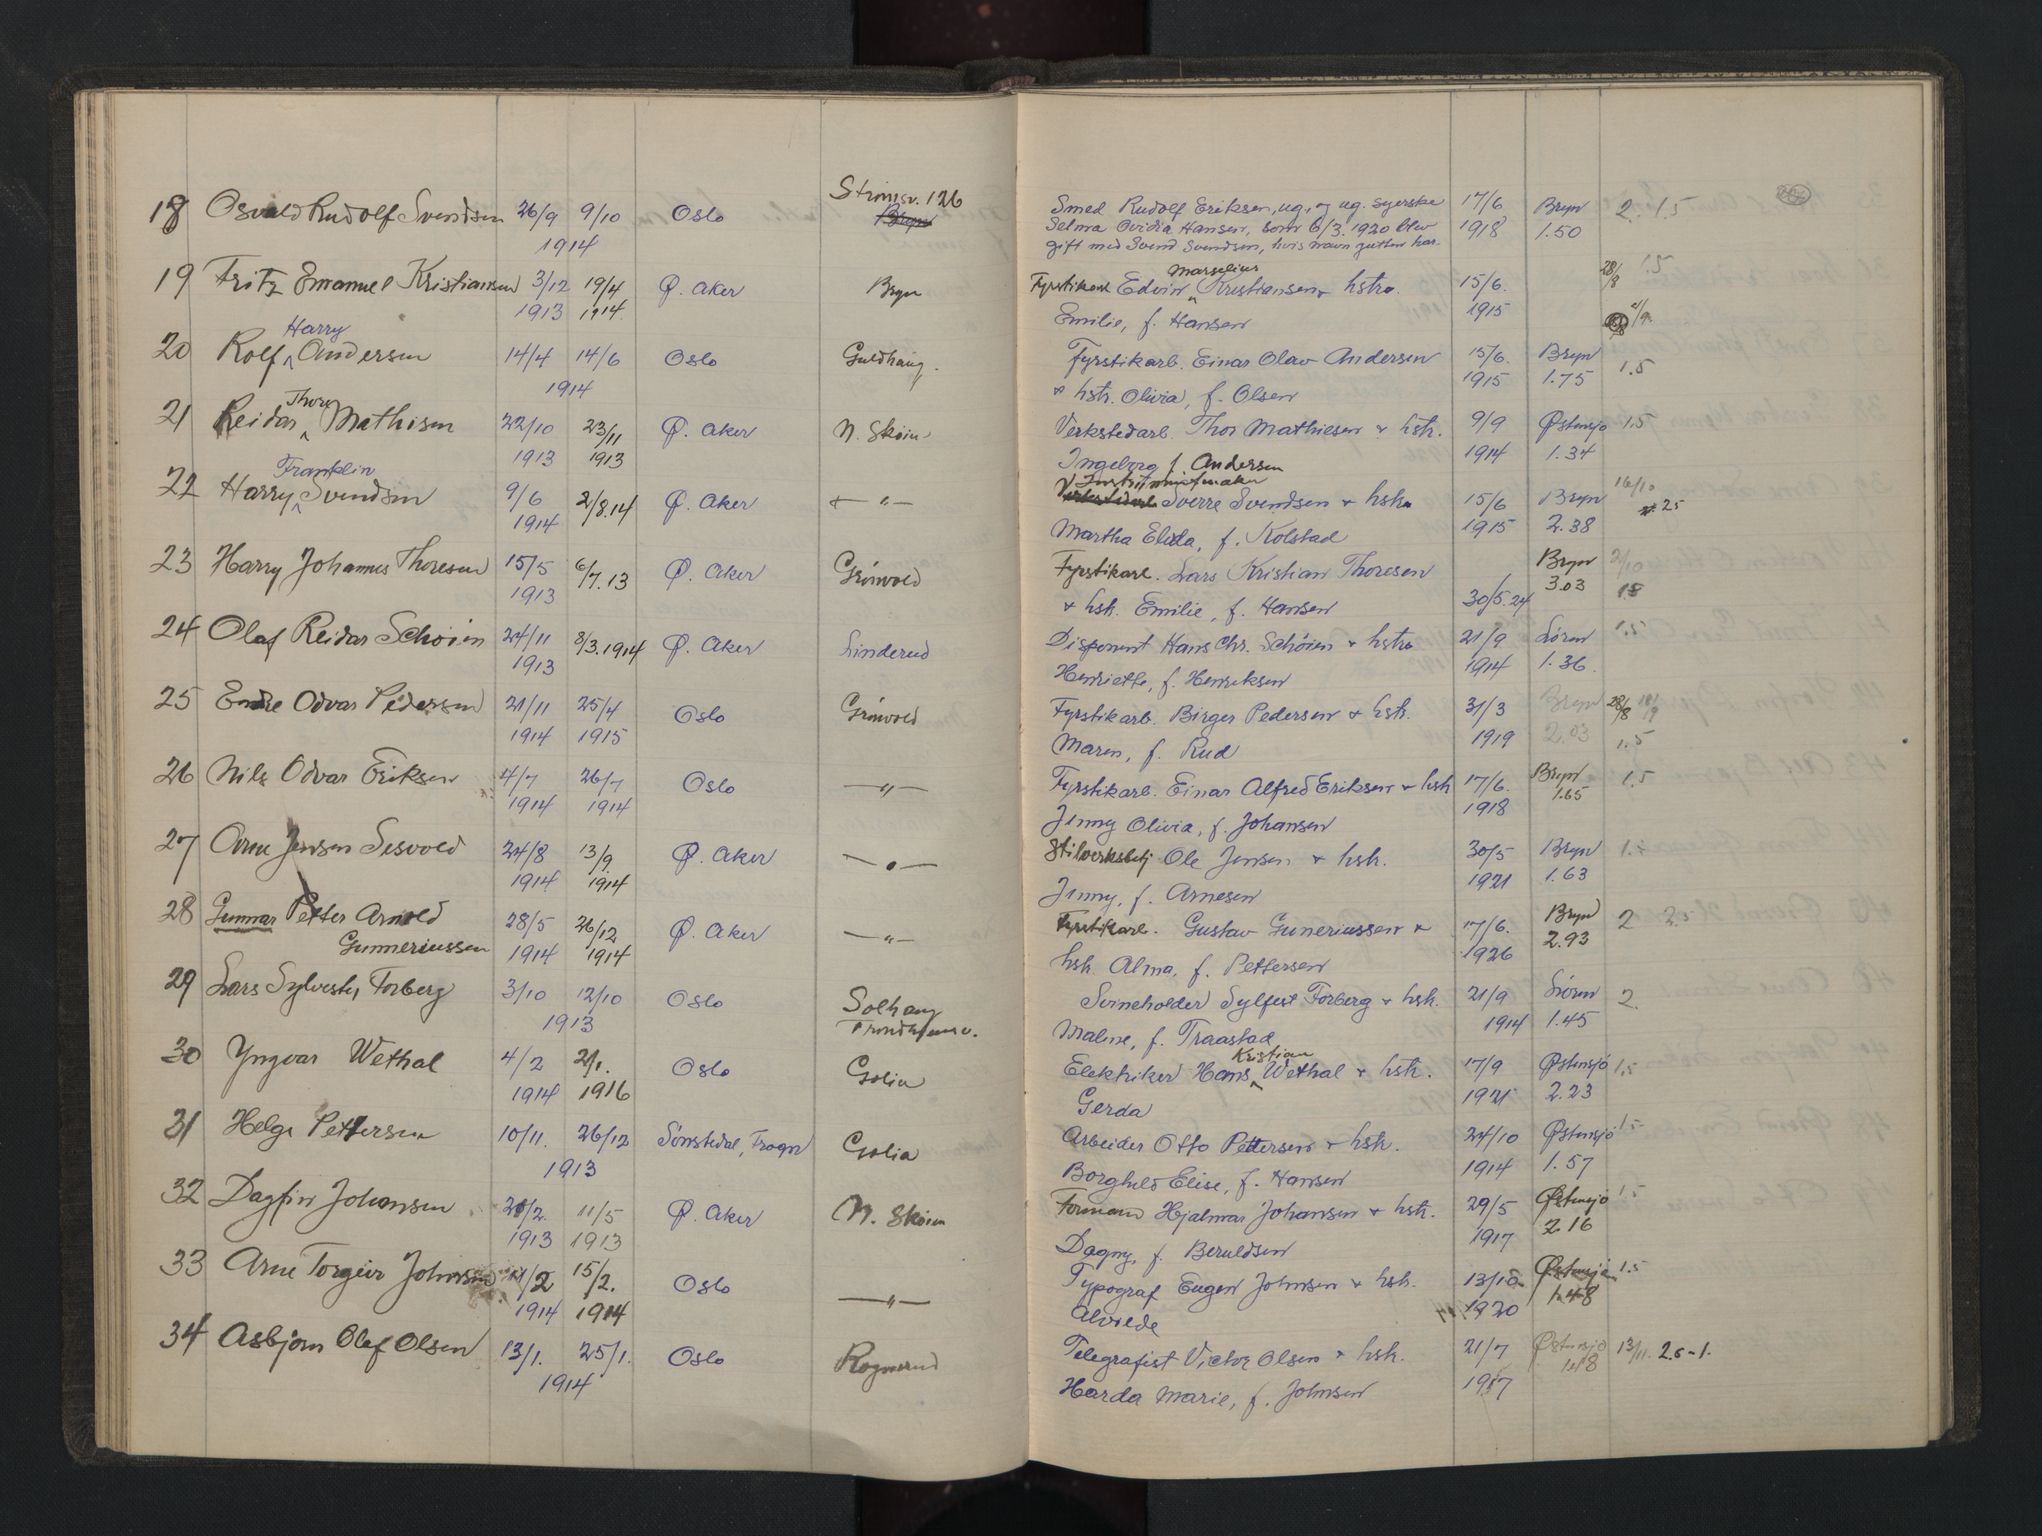 18 Osvald Rudolf Svendsen 26/9 9/10 1914 Oslo Strømsv. 126 Bryn
Smed Rudolf Eriksen, ug. og ug. syerske 17/6 1918 Bryn 1.50 2. 1.5
Selma Ovidia Hansen, som 6/3. 1920 blev
gift med Svend Svendsen, hvis navn gutten har.
19 Fritz Emanuel Kristiansen 3/12 1913 19/4 1914 Ø. Aker Bryn
Fyrstikarb Edvin Marselius Kristiansen & hstr. 15/6. 1915 28/8 1.5
Emilie, f. Hansen
20 Rolf Harry Andersen 14/4 14/6 1914 Oslo Guldhaug.
Fyrstikarb. Einar Olav Andersen 15/6. 1915 Bryn 1.75 1.5
& hstr. Olivia, f. Olsen
21 Reidar Thore Mathisen 22/10 1913 23/11 1913 Ø. Aker N. Skøien
Verkstedarb. Thor Mathiesen & hstr. 9/9 1914 Østensjø 1.34 1.5
Ingeborg f. Andersen
22 Harry Franklin Svendsen 9/6 1914 2/8.14 Ø. Aker — " —
Instrumentmaker Sverre Svendsen & hstr 15/6 1915 Bryn 2.38 16/10 25
Martha Elida, f. Kolstad
23 Harry Johannes Thoresen 15/5 1913 6/7.13 Ø. Aker Grønvold
Fyrstikarb. Lars Kristian Thoresen 30/5.24 Bryn 3.03
& hstr. Emilie, f. Hansen
24 Olaf Reidar Schøien 24/11 1913 8/3.1914 Ø. Aker Linderud
Disponent Hans Chr. Schøien & hstr 21/9 1914 Løren 1.36. 1.5
Henriette, f. Henriksen
25 Endre Odvar Pedersen 21/11 1914 25/4 1915 Oslo Grønvold
Fyrstikarb. Birger Pedersen & hstr. 31/3 1919 Bryn 2.03 28/8 1.5
Maren, f. Rud
26 Nils Odvar Eriksen 4/7 1914 26/7 1914 Oslo — " —
Fyrstikarb. Einar Alfred Eriksen & hstr 17/6. 1918 Bryn 1.65 1.5
Jenny Olivia, f. Johansen
27 Arne Jensen Sesvold 24/8 1914 13/9. 1914 Ø. Aker — " —
Stilverksbetj Ole Jensen & hstr. 30/5 1921 Bryn 1.63
Jenny, f. Arnesen
28 Gunnar Petter Arnold 28/5 1914 26/12 1914 Ø. Aker — " —
Gunneriussen
Fyrstikarb. Gustav Guneriussen & 17/6. 1926 Bryn 2.93 2
hstr. Alma, f. Pettersen
29 Lars Sylvester Forberg 3/10 12/10 1913 Oslo Solhaug
Trondhjemsv.
Svineholder Sylfest Forberg & hstr. 21/9 1914 Løren 1.45 2
Maline, f. Traastad
30 Yngvar Wethal 4/2 1914 2/1. 1916 Oslo Golia
Elektriker Hans Kristian Wethal & hstr. 17/9 1921 Østensjø 2.23 1.5
Gerda
31 Helge Pettersen 10/11. 26/12 1913 Sønstedal, Frogn Golia
Arbeider Otto Pettersen & hstr. 24/10 1914 Østensjø 1.57 1.5
Borghild Elise, f. Hansen
32 Dagfin Johansen 20/2. 1913 11/5 1913 Ø. Aker N. Skøien
Formann Hjalmar Johansen & hstr. 29/5 1917 Østensjø 2.16 1.5
Dagny, f. Beruldsen
33 Arne Torgeir Johnsen 11/2 1914 15/2. 1914 Oslo — " —
Typograf Eugen Johnsen & hstr. 13/10 1920 Østensjø 1.48 1.5
Alvilde
34 Asbjørn Olaf Olsen 13/1. 25/1. 1914 Oslo Rognerud
Telegrafist Victor Olsen & hstr. 21/7 1917 Østensjø 13/11. 2.5-1.
Harda Marie, f. Johnsen